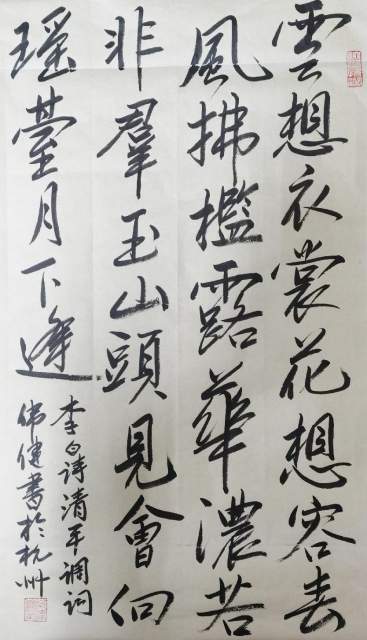 雲想衣裳花想容春
風拂檻露華濃若
非羣玉山頭見會向
瑤臺月下逢
李白诗清平调词
伟健書於杭州